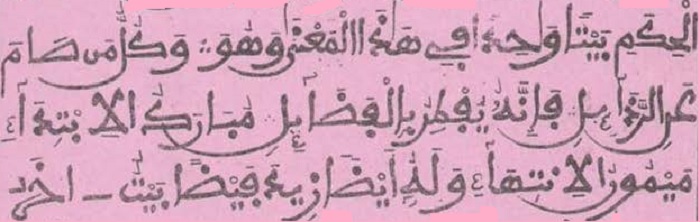 الْحِكَمِ بَيْتًا وَاحِدًا فِي هَذَا الْمَعْنَى وَهُوَ :: وَكُلُّ مَن صَامَ
عَنِ الرَّذَآئِلِ فَإِنَّهُ يُفْطِرُ بِالْفَضَآئِلِ مُبَارَكُ الِابْتِدَآءِ
مَيْمُونُ الِانتِهَآءِ وَلَهُ أَيْضًا زِيدَ فَيْضًا بَيْتٌ ـ اخَرُ